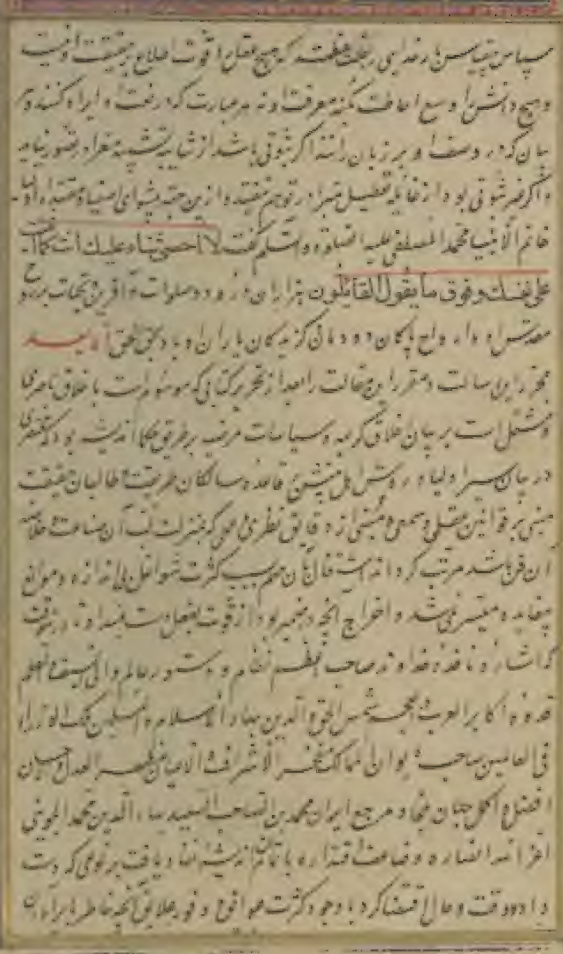 سپاس بیقیاس بارخدایی را که هیچ عقل را قوت اطلاع بر حقیقت او نیست
و هیچ دانش را وسع احاطت بکنه معرفت او نه هر عبارت که در نعت او ایراد کنند و هر
بیان که در وصف او بر زبان رانند اگر ثبوتی باشد از شایبه تشبیه معرا در تصور نیاید
و اگر غیر ثبوتی بود از غایله تعطیل مبرا در توهم نیفتد و ازین جهت پیشوای اصفیا و مقتدای اولیا
خاتم الانبیا محمد المصطفی علیه الصلوة و السلم گفت لا احصی ثناء علیک انت کما اثنیت
علی نفسک و فوق ما یقول القایلون هزاران درود و صلوات و آفرین و تحیات بر روح
مقدس او و ارواح پاکان دودمان او و گزیدگان یاران او باد بحق الحق اما بعد
محرر این رسالت و مقرر این مقالت را بعد از تحریر کتابی که موسوم است باخلاق ناصری
و مشتمل است بر بیان اخلاق کریمه و سیاسات مرضیه بر طریق حکما اندیشه بود که مختصری
در بیان سیر اولیا و روش اهل بینش بر قاعده سالکان طریقت و طالبان حقیقت
مبنی بر قوانین عقلی و سمعی و منبی از دقایق نظری و عملی که بمنزلت لب آن صناعت و خلاصه
آن فن باشد مرتب گرداند اشتغال بآن مهم بسبب کثرت شواغل بی‌اندازه و موانع
بیفایده میسر نمی‌شد و اخراج آنچه در ضمیر بود از قوت بفعل دست نمیداد تا درین وقت
که اشارت نافذ خداوند صاحب اعظم نظام و دستور عالم والی السیف و القلم
قدوه اکابر العرب و العجم شمس الحق و الدین بهاء الاسلام و المسلمین ملک الوزراء
فی العالمین صاحب دیوان الممالک مفخر الاشراف و الاعیان مظهر العدل و الاحسان
افضل و اکمل جهان ملجا و مرجع ایران محمد بن الصاحب السعید بهاء الدین محمد الجوینی
اعز الله انصاره و ضاعف اقتداره باتمام آن اندیشه نفاذ یافت بر نوعی که دست
داد و وقت و حال اقتضا کرد با وجود کثرت عوایق و وفور علایق آنچه خاطر بایراد آن